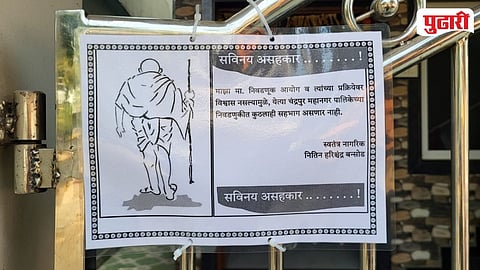 पुढारी
सविनय असहकार ........!
माझा मा. निवडणूक आयोग व त्यांच्या प्रक्रियेवर
विश्वास नसल्यामुळे, येत्या चंद्रपुर महानगर पालिकेच्या
निवडणुकीत कुठलाही सहभाग असणार नाही.
स्वतंत्र नागरिक
नितिन हरिश्चंद्र बन्सोड
सविनय असहकार ........!